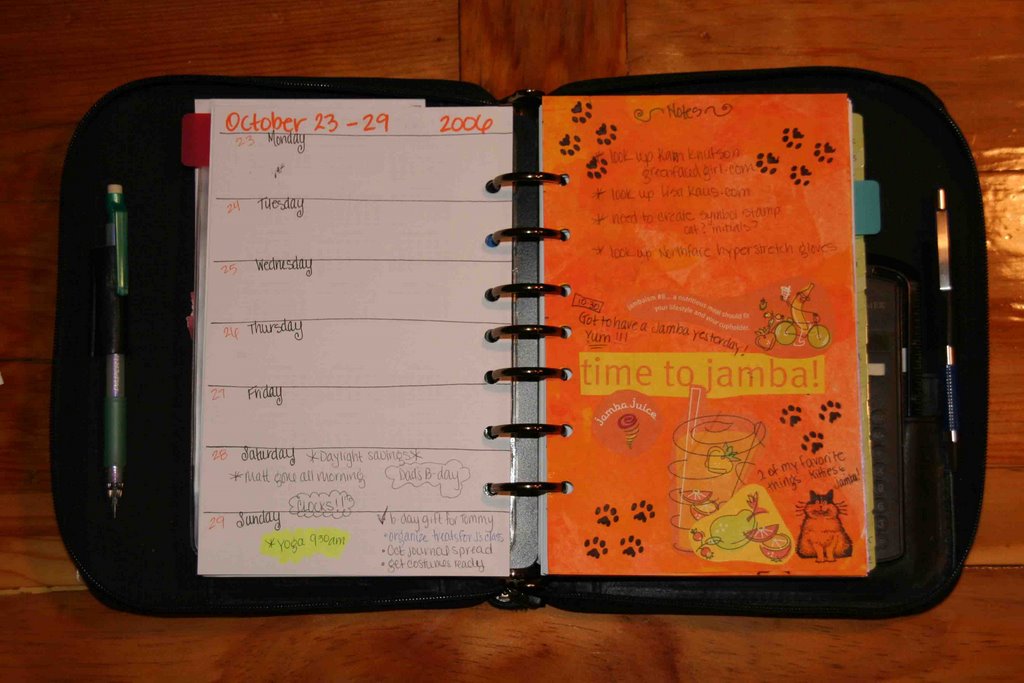 October 23 - 29 2006
23 Monday
24 Tuesday
25 Wednesday
26 Thursday
27 Friday
28 Saturday *Daylight savings*
*Matt gone all morning
Dad's B-day
Clocks!!
29 Sunday
*Yoga 930am
b day gift for Tommy
• organize treats for J's class
• Oct journal spread
• get costumes ready
Notes
* look up Kam Knutson
greenfaced girl.com
* look up lisa kaus.com
* need to create symbol stamp
cat? initials?
* look up Northface hyperstretch gloves
jambaism #8... a nutritious meal should fit
your lifestyle and your cupholder.
10-30
Got to have a Jamba yesterday!
Yum!!!
time to jamba!
jamba juice
2 of my favorite
things kitties &
Jamba!